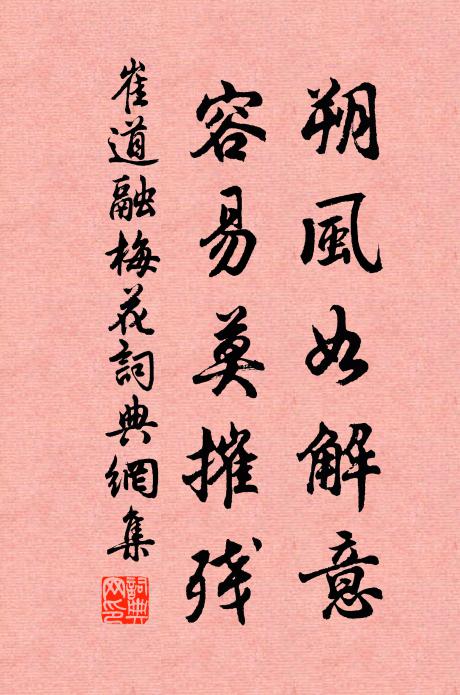 朔風如解意
容易莫摧残
崔道融梅花詞典網集
詞典网印